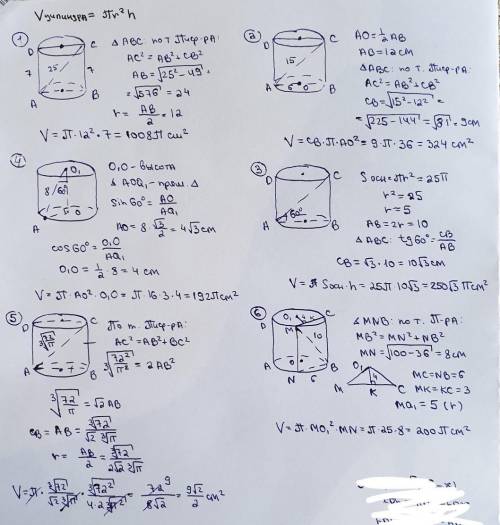 Vцилиндра = πr²h
①
D C
7 25 7
A B
△ABC: по т. Пиф-ра:
AC² = AB² + CB²
AB = √25² - 49 =
= √576 = 24
r = AB/2 = 12
V = π·12²·7 = 1008π см²
②
D C
15
A 6 O B
AO = ½ AB
AB = 12 см
△ABC: по т. Пиф-ра:
AC² = AB² + CB²
CB = √15² - 12² =
= √225 - 144 = √81 = 9 см
V = CB·π·AO² = 9·π·36 = 324 см²
④
O₁
8 60°
A O
O₁O - высота
∡AOO₁ - прям. △
sin60° = AO/AO₁
AO = 8·√3/2 = 4√3 см
cos60° = O₁O/AO₁
O₁O = ½·8 = 4 см
V = π·AO²·O₁O = π·16·3·4 = 192π см²
③
D C
A 60° B
Sосн = πr² = 25π
r² = 25
r = 5
AB = 2r = 10
△ABC: tg60° = CB/AB
CB = √3·10 = 10√3 см
V = Sосн·h = 25π·10√3 = 250√3 π см²
⑤
D C
A B
По т. Пиф-ра:
AC² = AB² + BC²
∛72²/π² = 2AB²
∛72/π = √2 AB
CB = AB = ∛72/√2 ∛π
r = AB/2 = ∛72/2√2 ∛π
V = π·∛72/√2 ∛π·∛72²/4·2 ∛π² = 72/8√2 = 9√2/2 см²
⑥
D O₁ K C
M 10
A O B
N 6
∡MNB: по т. П-ра:
MB² = MN² + NB²
MN = √100 - 36 = 8 см
O₁
4
M K C
MC = NB = 6
MK = KC = 3
MO₁ = 5 (r)
V = π·MO₁²·MN = π·25·8 = 200π см²